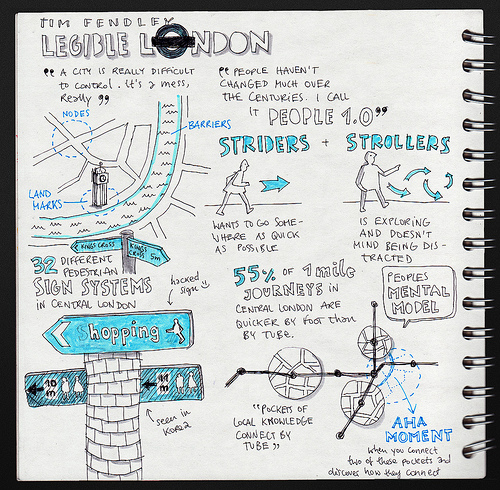 TIM FENDLEY
LEGIBLE LONDON
"A CITY IS REALLY DIFFICULT
to CONTROL. It's a mess,
Really"
"PEOPLE HAVEN'T
CHANGED MUCH OVER
THE CENTURIES. I CALL
IT PEOPLE 1.0"
NODES
BARRIERS
LAND
MARKS
STRIDERS + STROLLERS
WANTS TO GO SOME-
WHERE AS QUICK
AS POSSIBLE
IS EXPLORING
AND DOESN'T
MIND BEING DIS-
TRACTED
KINGS CROSS
KINGS
CROSS 5m
32 DIFFERENT
PEDESTRIAN
SIGN SYSTEMS
IN CENTRAL LONDON
hacked
sign
55% OF 1 mile
JOURNEYS IN
CENTRAL LONDON ARE
QUICKER BY FOOT than
BY TUBE.
PEOPLES
MENTAL
MODEL
Shopping
seen in
Korea
"POCKETS OF
LOCAL KNOWLEDGE
CONNECT BY
TUBE"
AHA
MOMENT
when you connect
two of those pockets and
discover how they connect